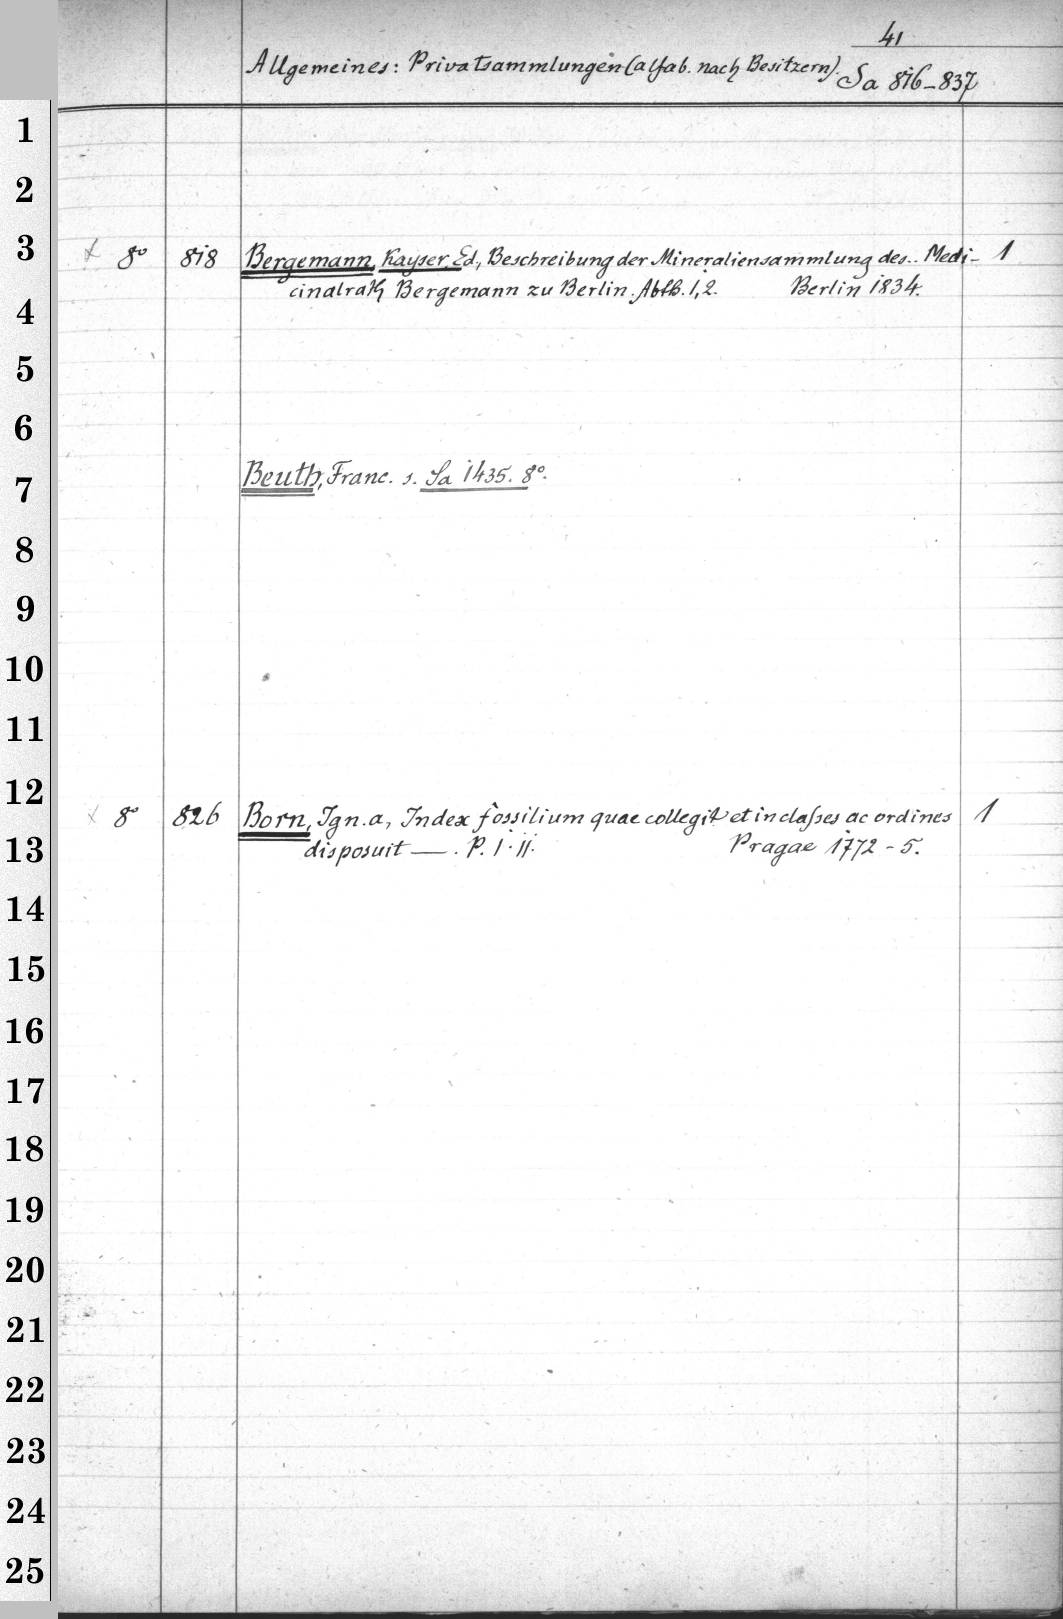 41
Allgemeines: Privatsammlungen (alfab. nach Besitzern). Sa 816-837
1
2
3 x 8° 818 Bergemann, Kayser, Ed., Beschreibung der Mineraliensammlung des.. Medi- 1
cinalrath Bergemann zu Berlin. Abth. 1, 2. Berlin 1834.
4
5
6
7 Beuth, Franc. s. Sa 1435. 8°.
8
9
10
11
12 x 8° 826 Born, Ign. a, Index fossilium quae collegit et in classes ac ordines 1
13 disposuit —. P. I. II. Pragae 1772-5.
14
15
16
17
18
19
20
21
22
23
24
25